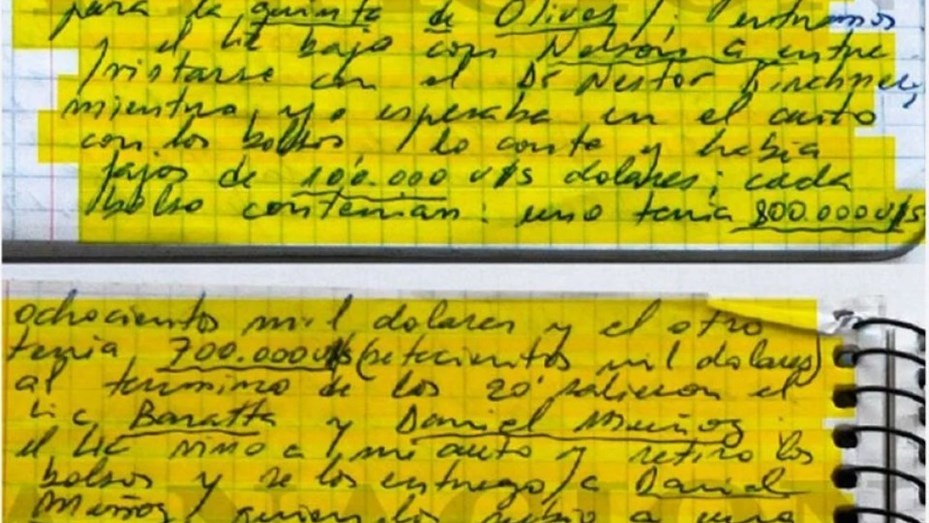 para la quinta de Olivos /: entramos
y el Lic bajo con Nelson a entre
/vistarse con el Dr Nestor Kirchner,
mientra yo esperaba en el auto
con los bolsos / lo conte y habia
fajos de 100.000 u/s dolares; cada
bolso contenian: uno tenia 800.000 u/s
ochocientos mil dolares y el otro
tenia 700.000 u/s (setecientos mil dolares)
al termino de los 20' salieron el
Lic Baratta y Daniel Muñoz
el Lic vino a / mi auto y retiro los
bolsos y se los entrego / a Daniel
Muñoz / quien los subio a una